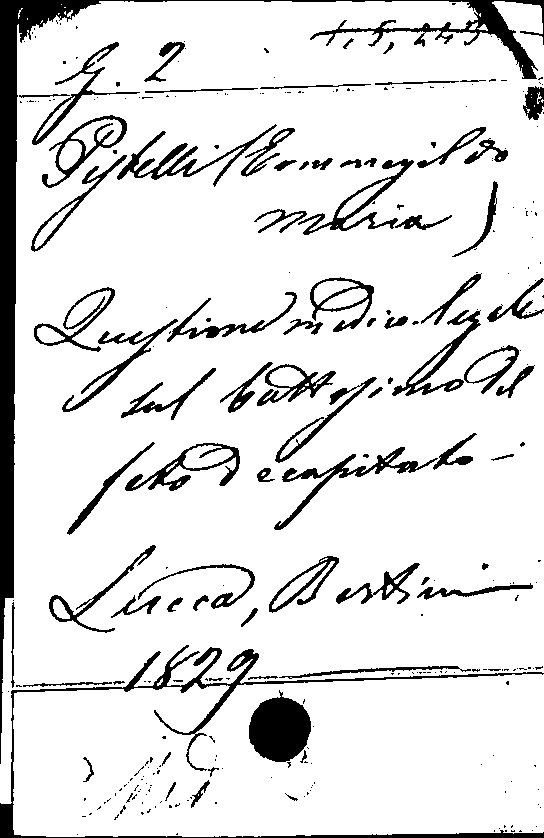 1, 5, 243
G. 2
Pistelli (Ermenegildo
Maria)
Questione medico-legale
sul battesimo del
feto decapitato -
Lucca, Bertini
1829
Med.